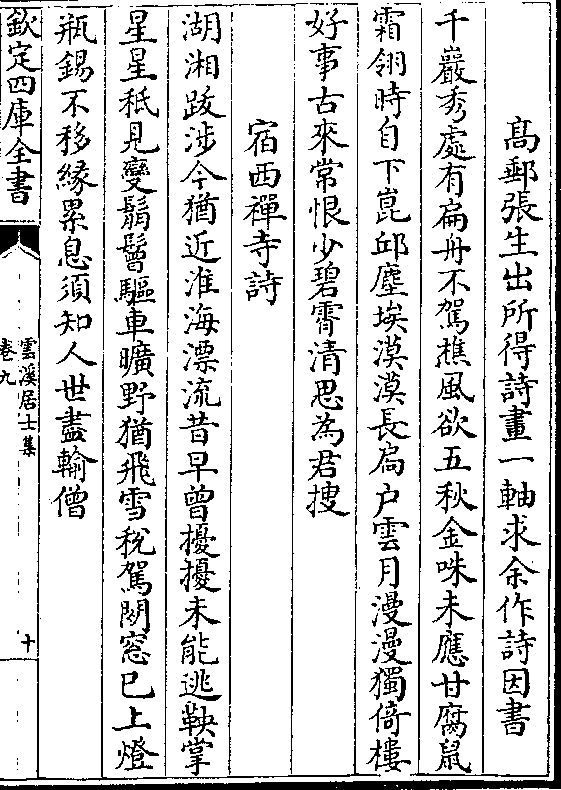 高郵張生出所得詩畫一軸求余作詩因書
千巖秀處有扁舟不駕樵風欲五秋金咮未應甘腐鼠
霜翎時自下崑邱塵埃漠漠長扄户雲月漫漫獨倚樓
好事古來常恨少碧霄清思為君搜
宿西禪寺詩
湖湘跋涉今猶近淮海漂流昔早曾擾擾未能逃鞅掌
星星秪見變鬅鬙驅車曠野猶飛雪稅駕閟窓已上燈
瓶錫不移緣累息須知人世盡輸僧
欽定四庫全書
雲溪居士集
卷九
十